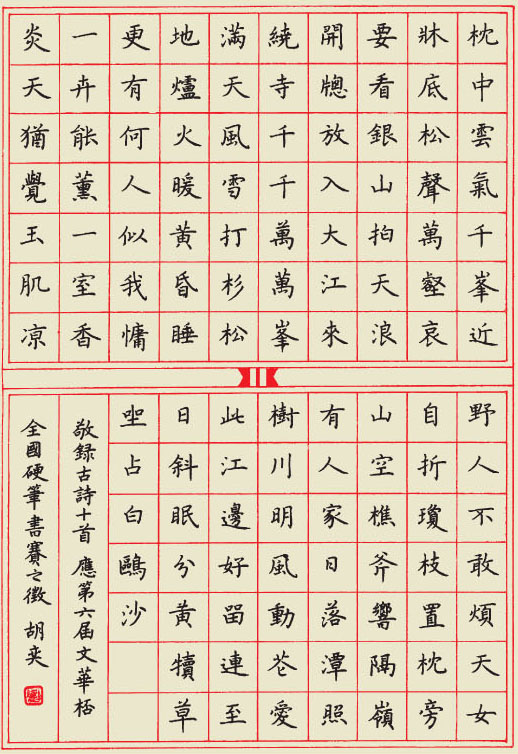 枕中雲氣千峯近
牀底松聲萬壑哀
要看銀山拍天浪
開牕放入大江來
繞寺千千萬萬峯
滿天風雪打杉松
地爐火暖黃昏睡
更有何人似我慵
一卉能薰一室香
炎天猶覺玉肌凉
野人不敢煩天女
自折瓊枝置枕旁
山空樵斧響隔嶺
有人家日落潭照
樹川明風動芲愛
此江邊好留連至
日斜眠分黃犢草
坐占白鷗沙
敬録古詩十首 應第六届文華桮
全國硬筆書賽之徵 胡奕